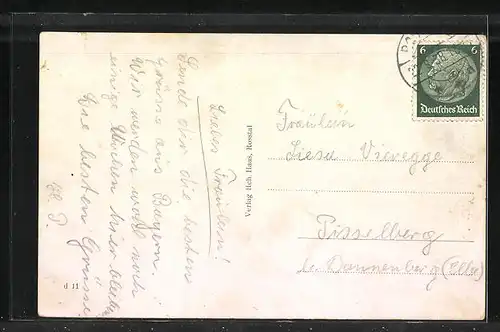 Liebes Fräulein!
Sende dir die besten
Grüsse aus Bayern.
Wir werden wohl noch
einige Wochen hier bleiben
Die besten Grüsse
d 11
Verlag Hch. Haas, Rosstal
6 6
Deutsches Reich
Fräulein
Liesa Vieregge
Pisselberg
b. Dannenberg (Elbe)